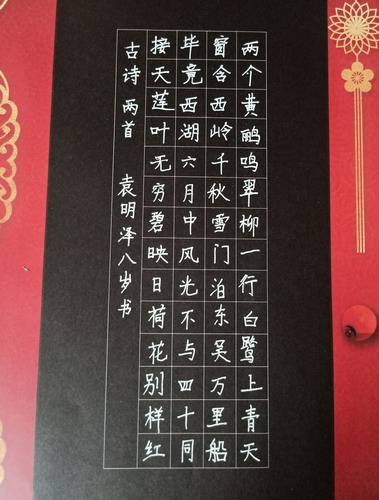 两个黄鹂鸣翠柳一行白鹭上青天
窗含西岭千秋雪门泊东吴万里船
毕竟西湖六月中风光不与四十同
接天莲叶无穷碧映日荷花别样红
古诗两首 袁明泽八岁书